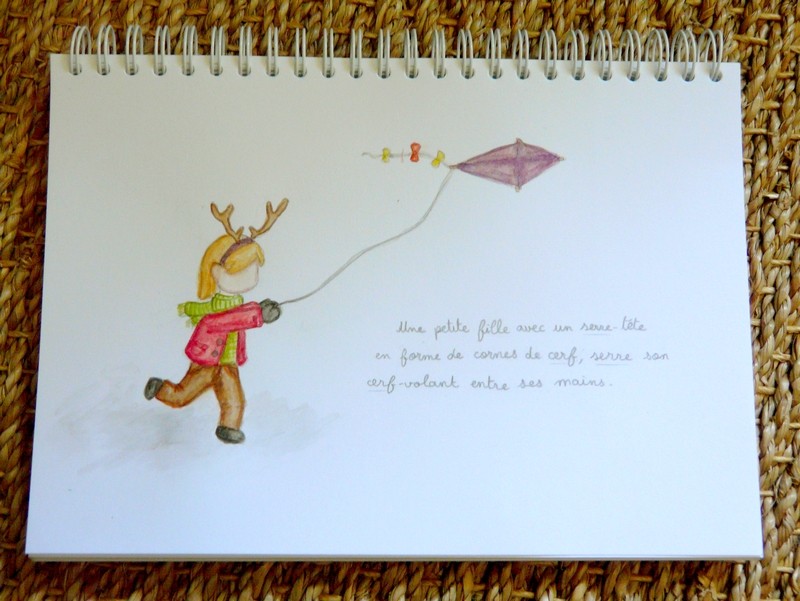 Une petite fille avec un serre-tête
en forme de cornes de cerf, serre son
cerf-volant entre ses mains.